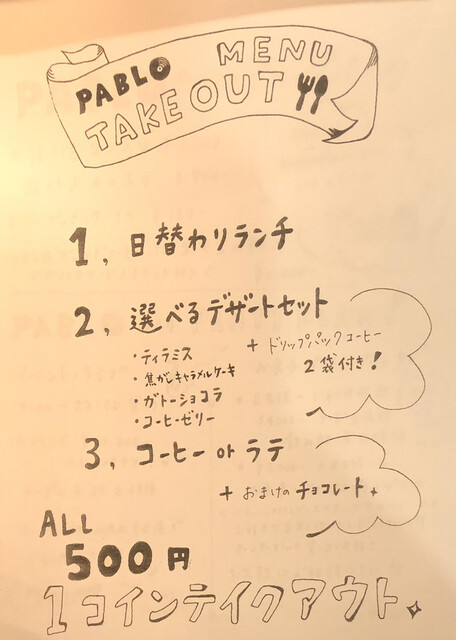 PABLO MENU
TAKE OUT
1, 日替わりランチ
2, 選べるデザートセット
・ティラミス
・焦がしキャラメルケーキ
・ガトーショコラ
・コーヒーゼリー
+ ドリップパックコーヒー
2袋付き!
3, コーヒー or ラテ
+ おまけのチョコレート
ALL
500円
1コインテイクアウト